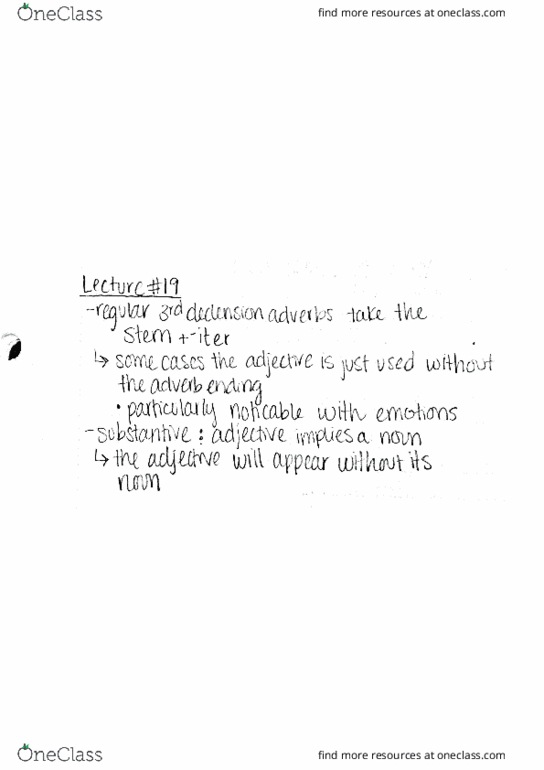 OneClass
find more resources at oneclass.com
Lecture #19
-regular 3rd declension adverbs take the
stem + -iter
↳ some cases the adjective is just used without
the adverb ending
• particularly noticable with emotions
-substantive: adjective implies a noun
↳ the adjective will appear without its
noun
OneClass
find more resources at oneclass.com